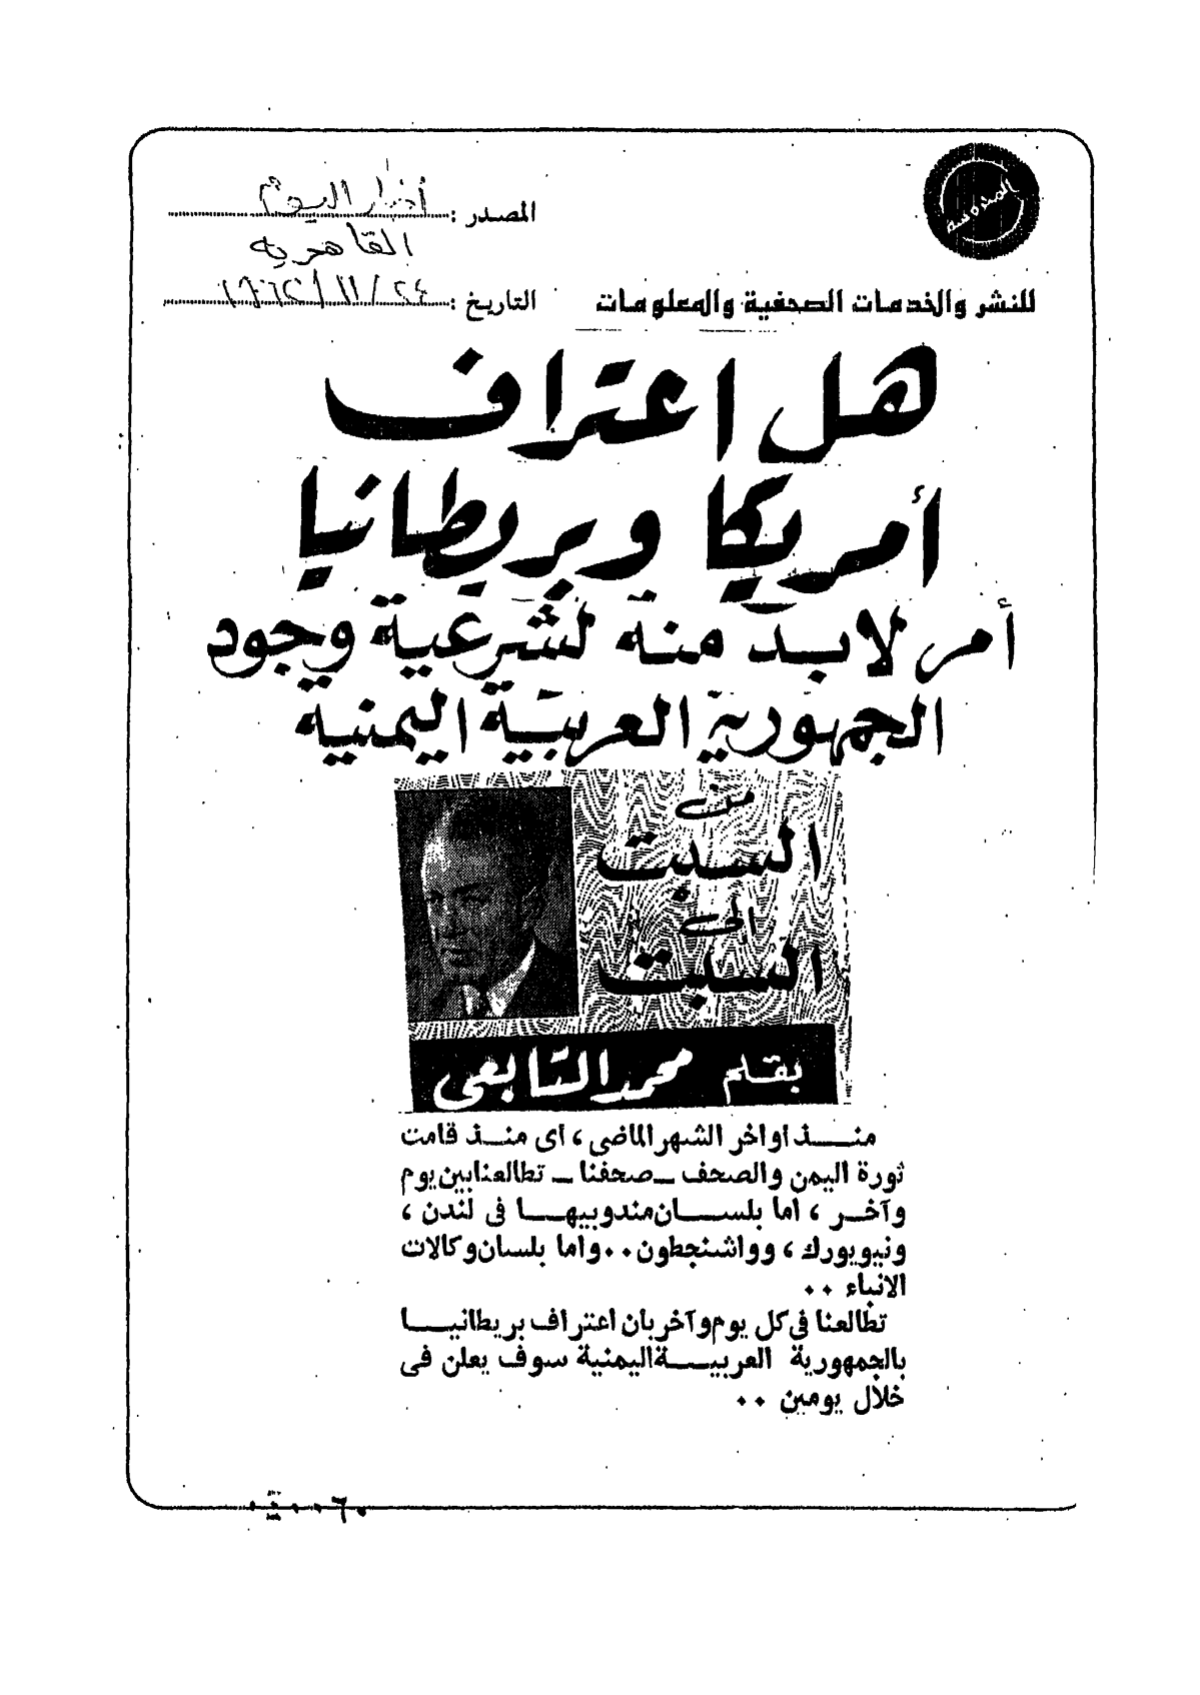 المصدر : أخبار اليوم
القاهرية
التاريخ : ٢٤ / ١١ / ١٩٦٢
للنشر والخدمات الصحفية والمعلومات
هل اعتراف
أمريكا وبريطانيا
أمر لابد منه لشرعية وجود
الجمهورية العربية اليمنية
من
السبت
إلى
السبت
بقلم محمد التابعى
منـــذ اواخر الشهر الماضى ، اى منـذ قامت
ثورة اليمن والصحف ــ صحفنا ــ تطالعنا بين يوم
وآخـر ، اما بلســان مندوبيهـا فى لندن ،
ونيويورك ، وواشنجطون .. واما بلسان وكالات
الانباء ..
تطالعنا فى كل يوم وآخر بان اعتراف بريطانيـا
بالجمهورية العربيـة اليمنية سوف يعلن فى
خلال يومين ..